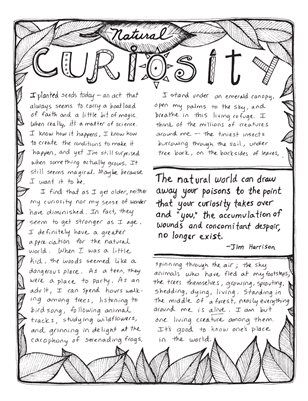 Natural
CURIOSITY
I planted seeds today – an act that
always seems to carry a boatload
of faith and a little bit of magic
when really, it's a matter of science.
I know how it happens, I know how
to create the conditions to make it
happen, and yet I'm still surprised
when something actually grows. It
still seems magical. Maybe because
I want it to be.
I find that as I get older, neither
my curiosity nor my sense of wonder
have diminished. In fact, they
seem to get stronger as I age.
I definitely have a greater
appreciation for the natural
world. When I was a little
kid, the woods seemed like a
dangerous place. As a teen, they
were a place to party. As an
adult, I can spend hours walk-
ing among trees, listening to
bird song, following animal
tracks, studying wildflowers,
and grinning in delight at the
cacophony of serenading frogs.
I stand under an emerald canopy,
open my palms to the sky, and
breathe in this living refuge. I
think of the millions of creatures
around me – the tiniest insects
burrowing through the soil, under
tree bark, on the backsides of leaves,
The natural world can draw
away your poisons to the point
that your curiosity takes over
and "you," the accumulation of
wounds and concomitant despair,
no longer exist.
–Jim Harrison
spinning through the air; the shy
animals who have fled at my footsteps,
the trees themselves, growing, sprouting,
shedding, dying, living. Standing in
the middle of a forest, nearly everything
around me is alive. I am but
one living creature among them.
It's good to know one's place
in the world.